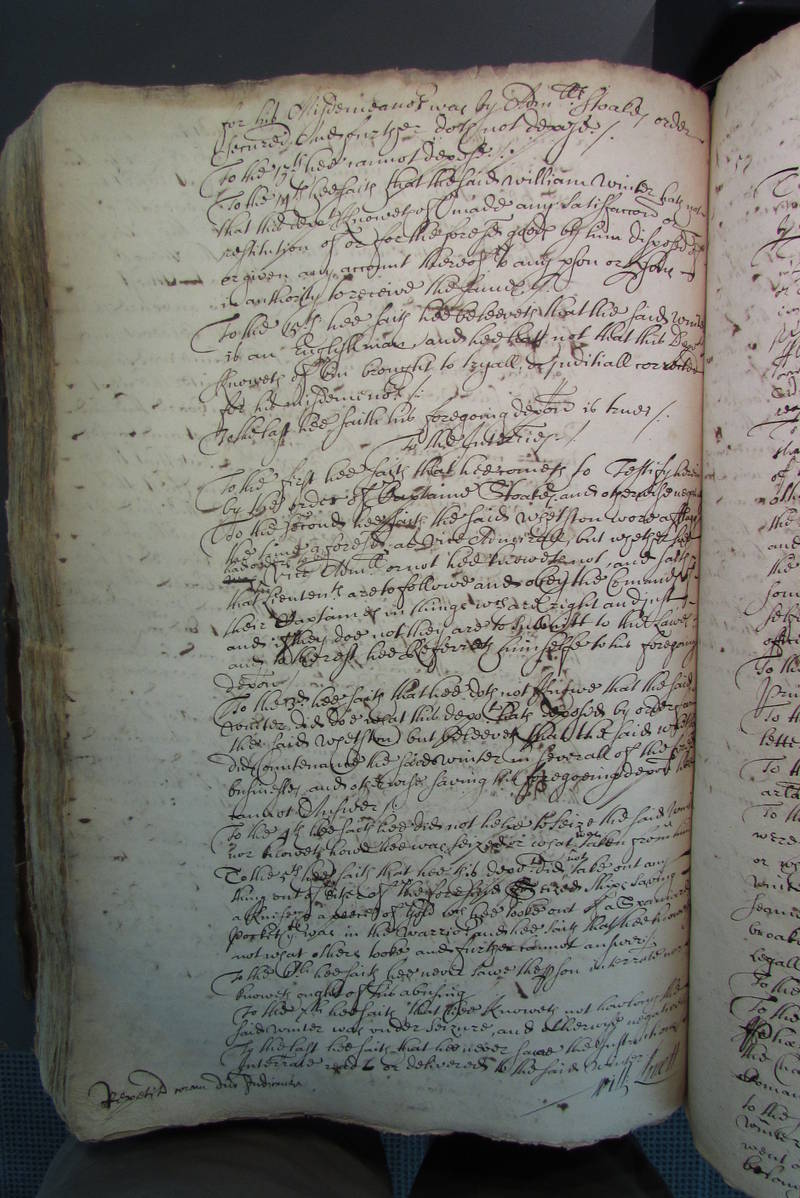 for his Misdemeanor was by Cap:tt Stoakes order
secured, And further doth not depose /.
To the 13th hee cannot depose /.
To the 14th hee saith that the said William Winter hath not
that this dept knoweth of made any satisfaccon or
restitution of or for the presd goods by him disposed of
or given any account thereof to any pson or psons
in authority to receive the same /
To the 15th hee saith hee beleeveth that the said Winter
is an Englishman, and hee hath not that this dept
knoweth of bin brought to tryall, or Juditiall correction
for his misdemenor /.
To the last hee saith his foregoing deposn is true /.
To the Interries /.
To the first hee saith that hee cometh to Testify herein
by the order of Captaine Stoakes, and otherwise negatively
To the second hee saith the said Whetston wore a flagg
the time aforesd as Vice Admirall, but whether hee
had order to bee Vice Admll or not hee knoweth not, and saith
that Lieutents are to followe and obey the Commands of
their Captaines in things wch are right and just
and if they doe not they are to submitt to the Lawes
and to the rest hee Referreth himselfe to his foregoing
deposn
To the 3d hee saith that hee doth not knowe that the said
Winter did doe what this dept hath deposed by order from
the said Whetston but beleeveth that the said Whetston
did Countenance the said Winter in severall of the
businesses, and otherwise saving his foregoeing deposn hee
cannot Answer /.
To the 4th hee saith hee did not helpe to seize the said Winter
nor knoweth howe hee was seized or what was taken from him
To the 5th hee saith that hee this dept did not take out any
thing out of either of the foresaid Seized Shipps saving
a knife & a peece of gold wch hee tooke out of a Spaniards
Pockett yt was in the Warrior, and hee saith that hee knoweth
not what others tooke and further cannot answer /.
To the 6th hee saith hee never sawe the pson interrate nor
knoweth ought of his abusing
To the 7th hee saith that hee knoweth not howlong the
said Winter was under seizure, and otherwise negatively
To the last hee saith that hee never sawe the Instructions
Interrate read to or delivered to the said Winter
Repetit coram duobus Judicibus
Will: